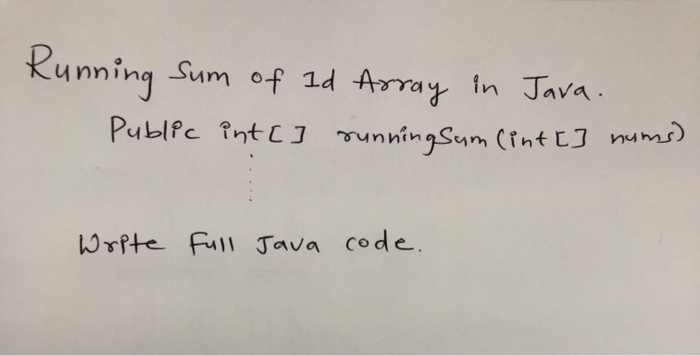 Running Sum of 1d Array in Java.
Public int[] runningSum(int[] nums)
Write Full Java code.